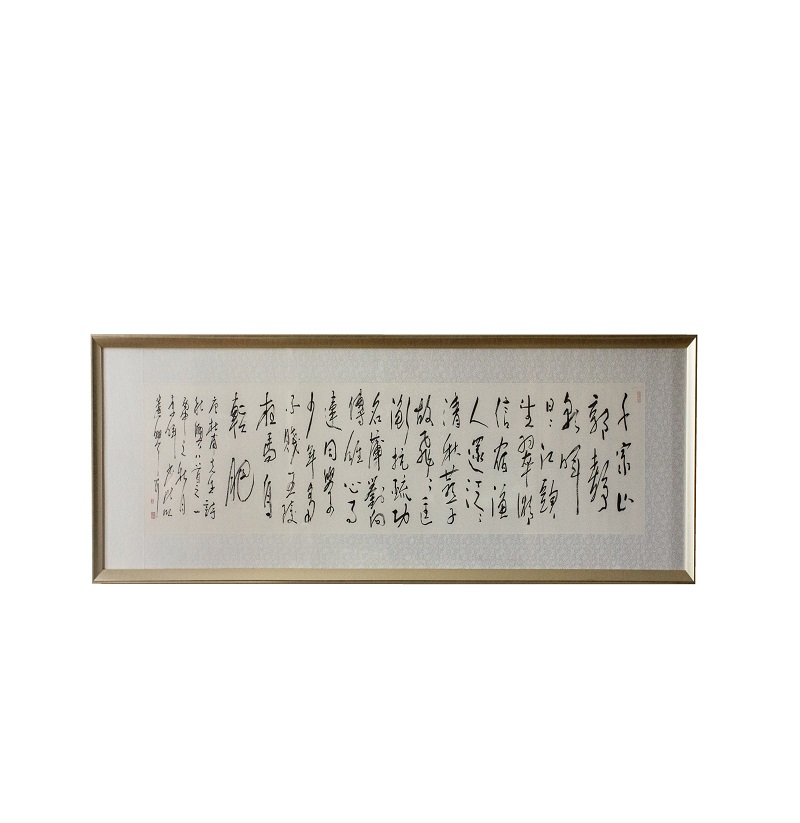 千家山
郭靜
朝暉
日々江樓
坐翠微
信宿漁
人還泛々
清秋燕子
故飛々匡
衡抗疏功
名薄劉向
傳經心事
違同學
少年多
不賤五陵
衣馬自
輕肥
唐杜甫先生詩
秋興八首之一